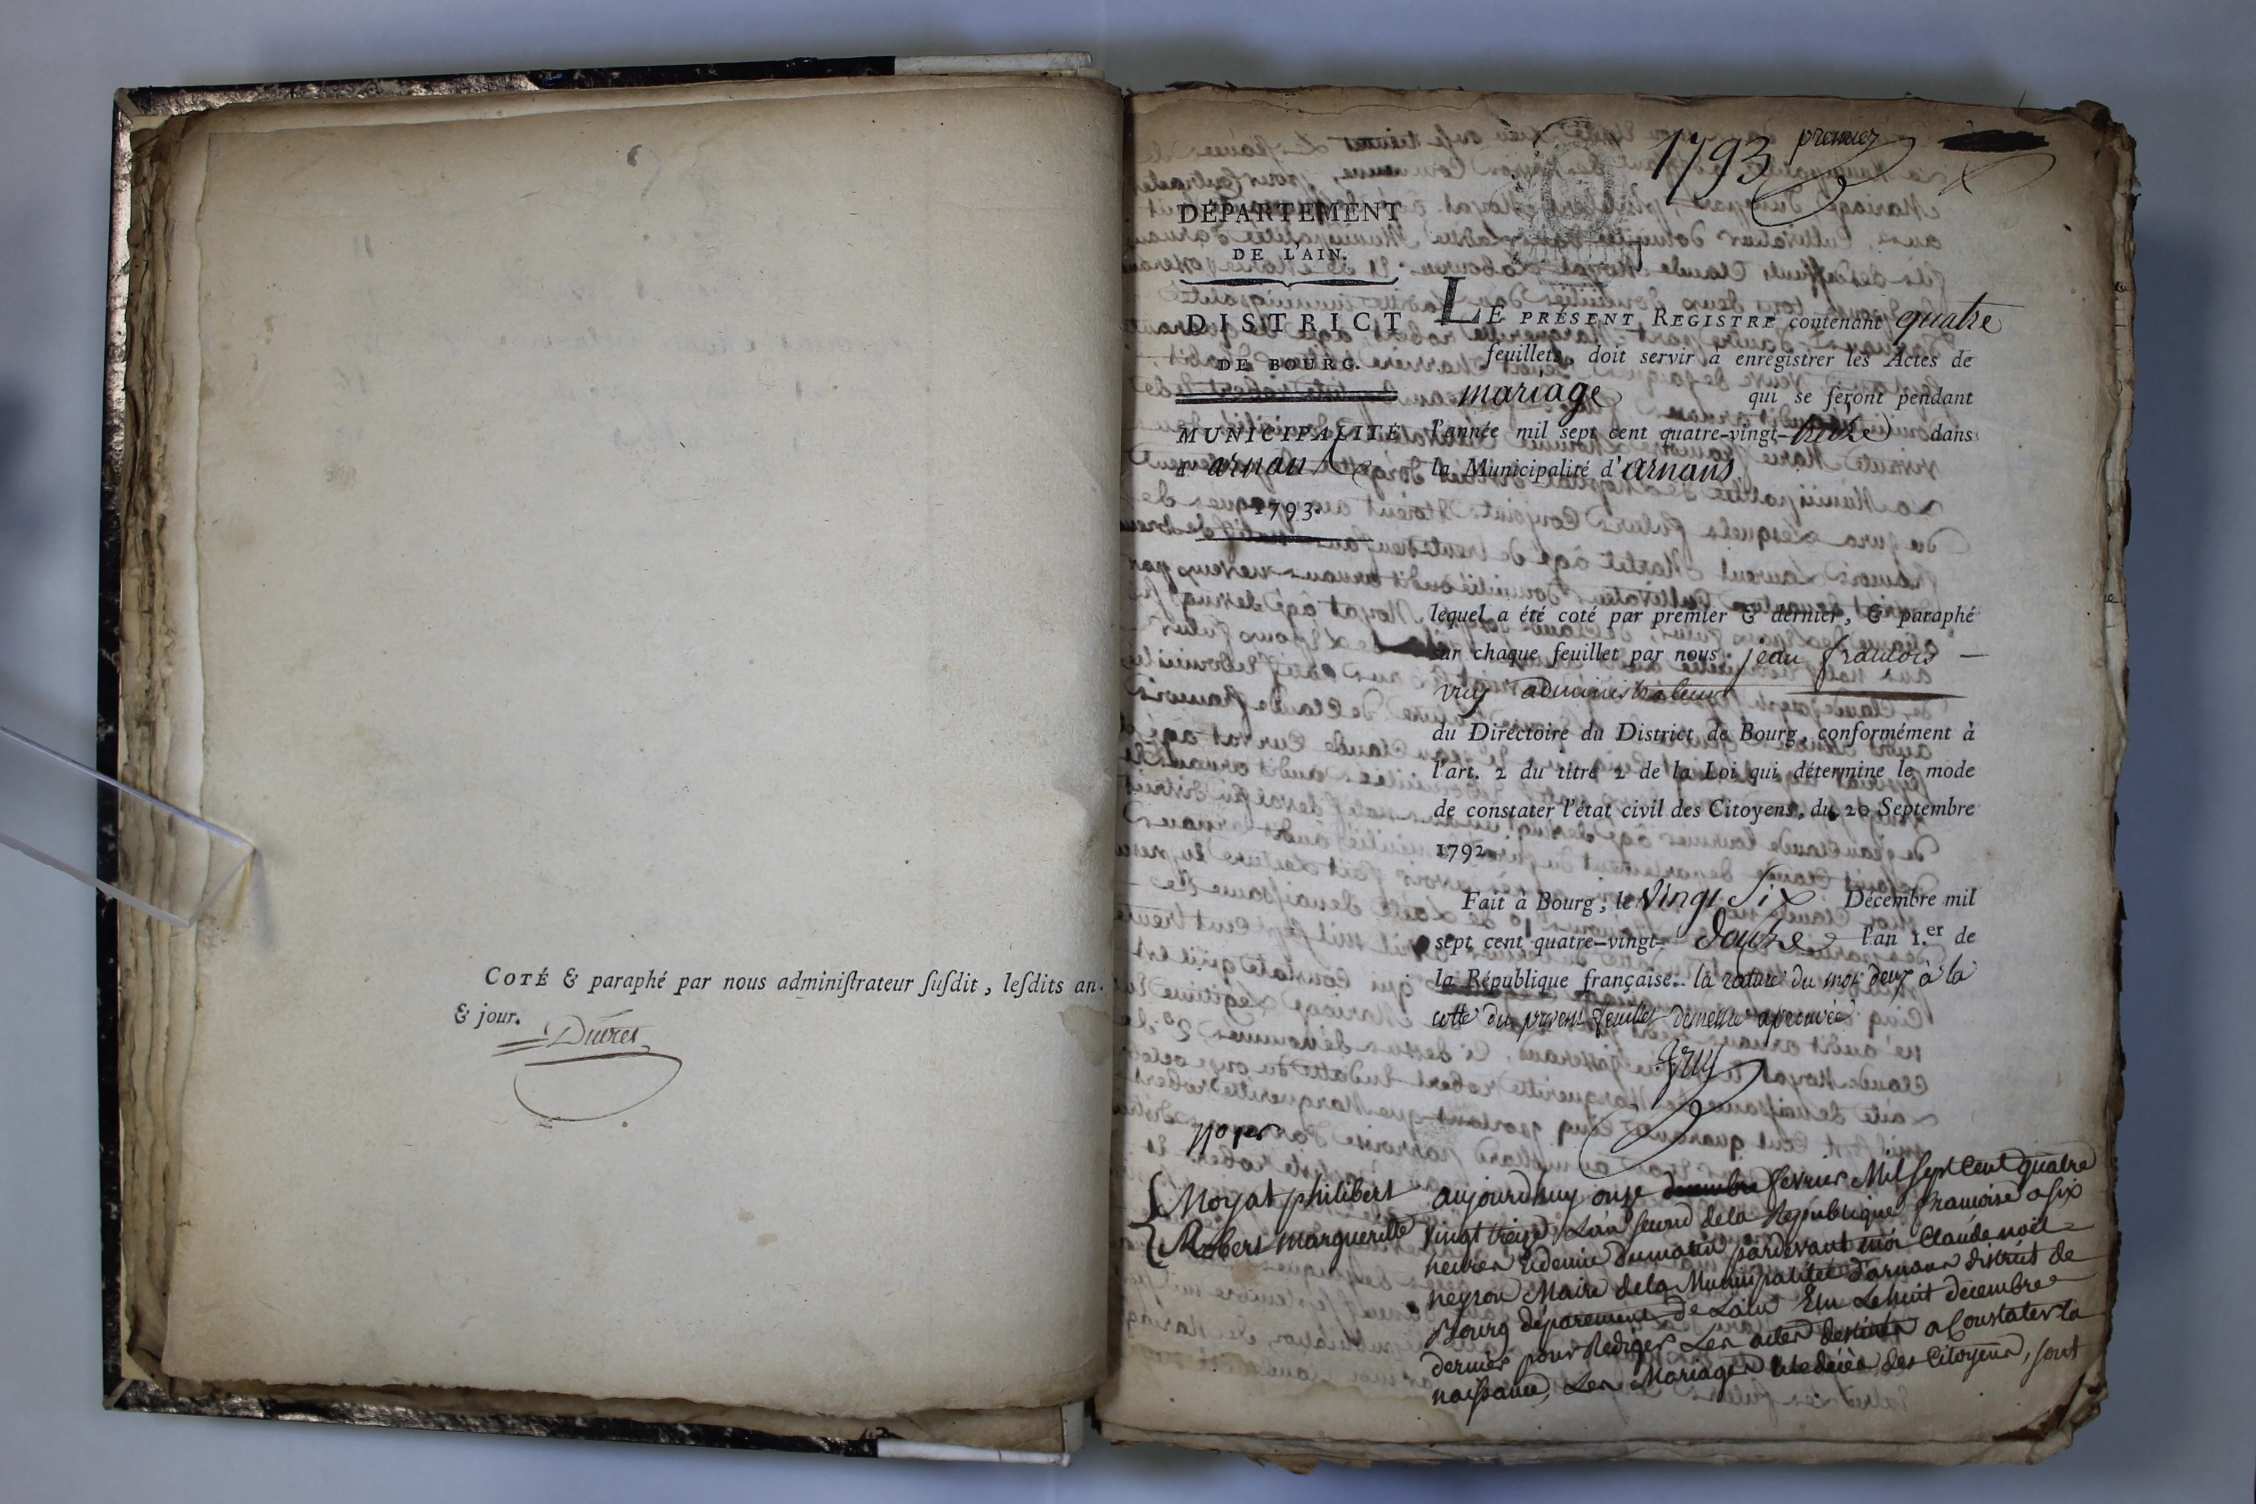 COTÉ & paraphé par nous adminiſtrateur ſuſdit, leſdits an.
& jour.
1793 premier
DÉPARTEMENT
DE L'AIN.
DISTRICT
DE BOURG.
MUNICIPALITÉ
d'arnans
1793.
LE PRÉSENT REGISTRE contenant quatre
feuillets, doit servir à enregistrer les Actes de
mariage qui se feront pendant
l'année mil sept cent quatre-vingt-treize dans
la Municipalité d'arnans
lequel a été coté par premier & dernier, & paraphé
sur chaque feuillet par nous jean francois
administrateur
du Directoire du District de Bourg, conformément à
l'art. 2 du titre 2 de la Loi qui détermine le mode
de constater l'état civil des Citoyens, du 20 Septembre
1792.
Fait à Bourg, le vingt Six Décembre mil
sept cent quatre-vingt-douze l'an 1.er de
la République française. la rature du mot deux à la
cotte du présent feuillet demeure aprouvée
Moyat philibert
Robert margueritte
aujourdhuy onze decembre fevrier Mil sept Cent quatre
vingt treize L'an second de la Republique francoise a six
heures Et demie du matin pardevant moi Claude noël
neyron Maire de la Municipalitée d'arnans district de
Bourg département de L'ain Elu Le huit decembre
dernier pour Rediger Les actes destinés a Constater la
naissance, Les Mariages et le décès des Citoyens, sont